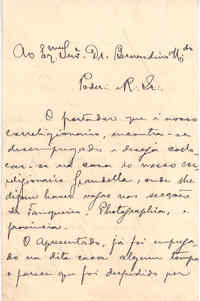 Ao Exmº Snr. Dr. Bernardino Mdo
Peder. R. Sr.
O portador que é nosso
correligionario, encontra-se
desempregado e deseja collo-
car-se na casa do nosso cor-
religionario Grandella, onde lhe
dizem haver vagas nas secções
de Fanqueiro, Photographia, e
provincias.
O Apresentado, já foi emprega-
do na dita casa algum tempo
e parece que foi despedido por